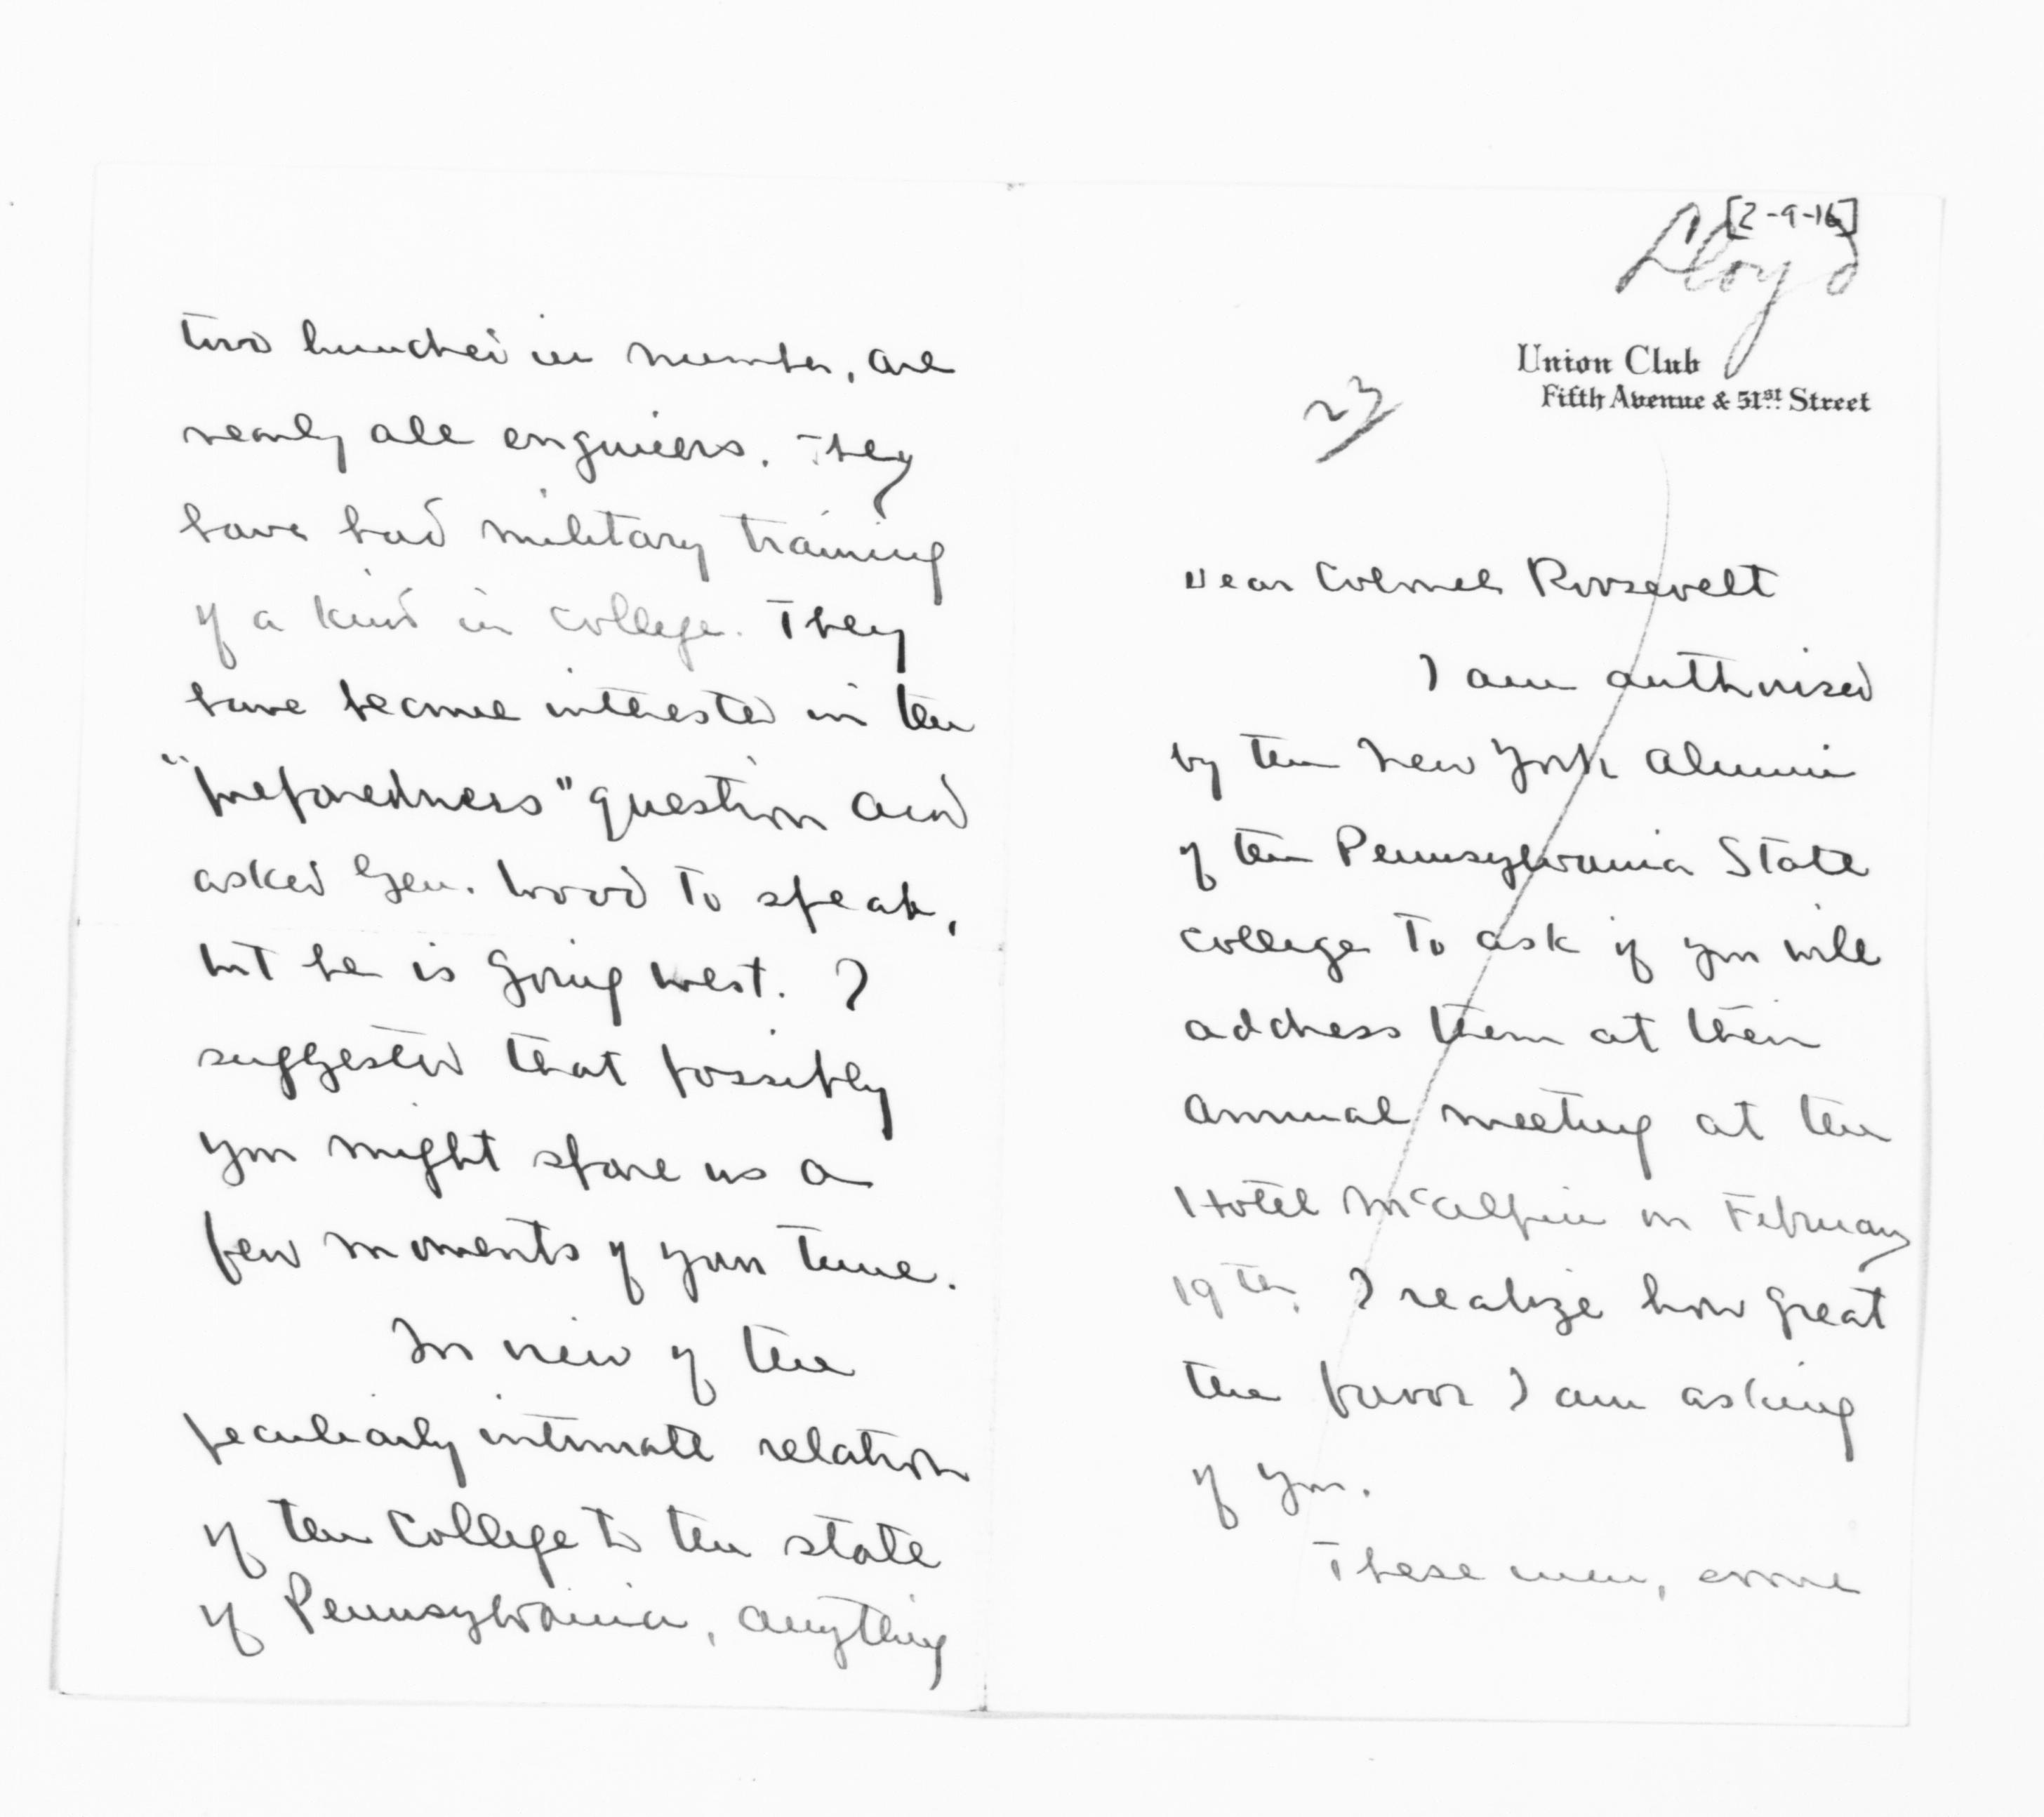 [2-9-16]
Lloyd
Union Club
Fifth Avenue & 51st Street
23
Dear Colonel Roosevelt
I am authorised
by the New York Alumni
of the Pennsylvania State
College to ask if you will
address them at their
annual meeting at the
Hotel McAlpin on February
19th. I realize how great
the favor I am asking
of you.
These men, some
two hundred in number, are
nearly all engineers. They
have had military training
of a kind in college. They
have become interested in the
"preparedness" question and
asked Gen. Wood to speak,
but he is going west. I
suggested that possibly
you might spare us a
few moments of your time.
In view of the
peculiarly intimate relation
of the College to the state
of Pennsylvania, anything